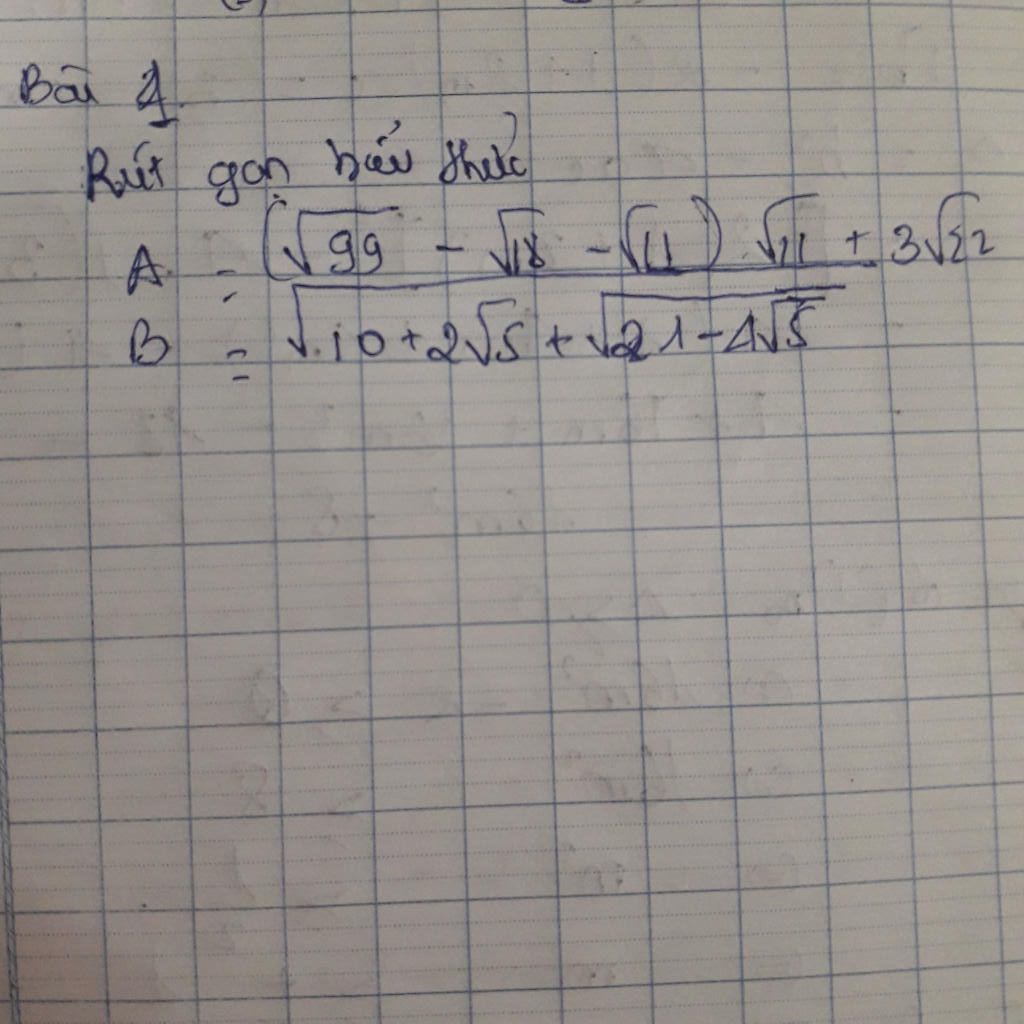 Bài 1
Rút gọn biểu thức
A = (√99 - √18 - √11) √11 + 3√22
B = √10 + 2√5 + √21 - 4√5